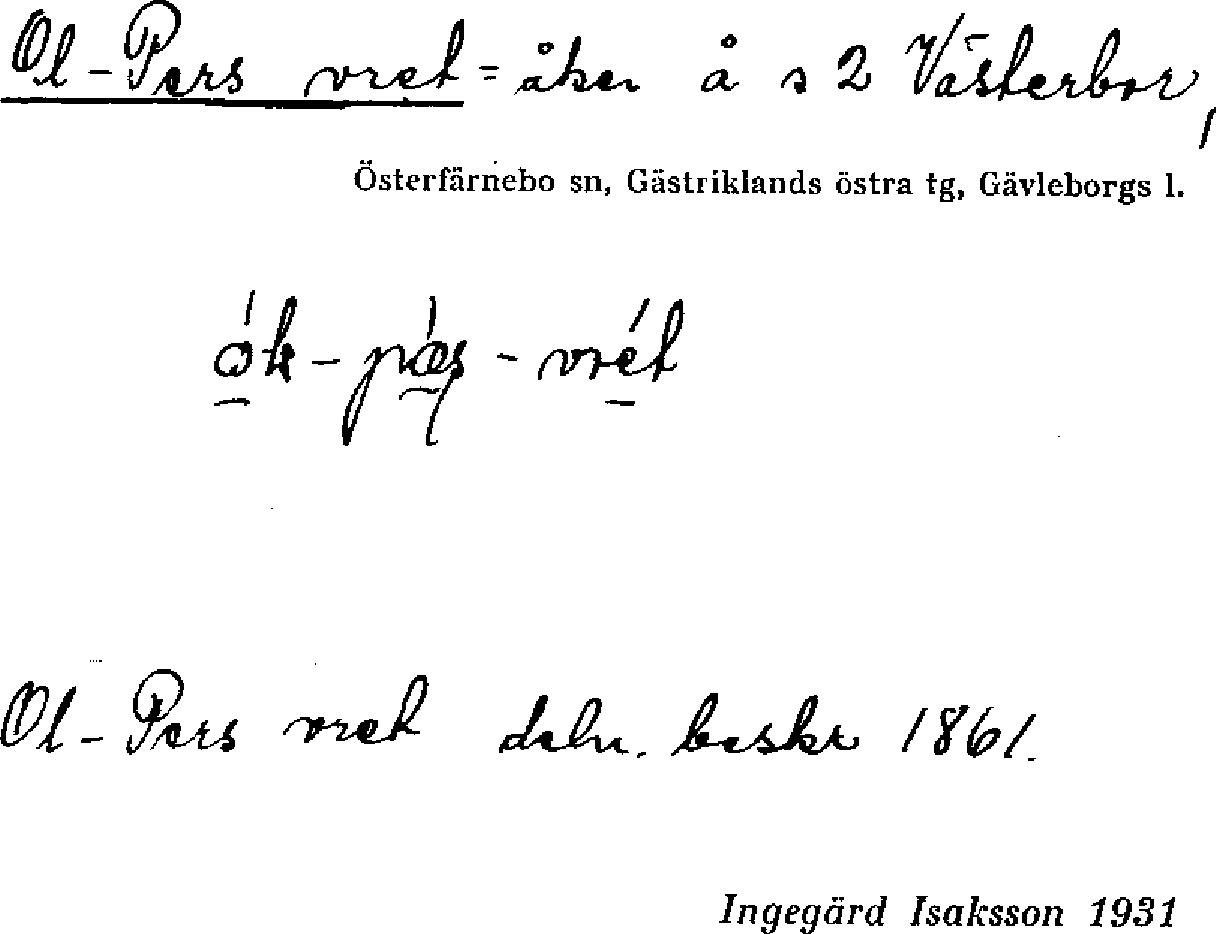 Ol-Pers vret = åker å s 2 Västerbor,
Österfärnebo sn, Gästriklands östra tg, Gävleborgs l.
Ol-Pers vret deln. beskr 1861.
Ingegärd Isaksson 1931